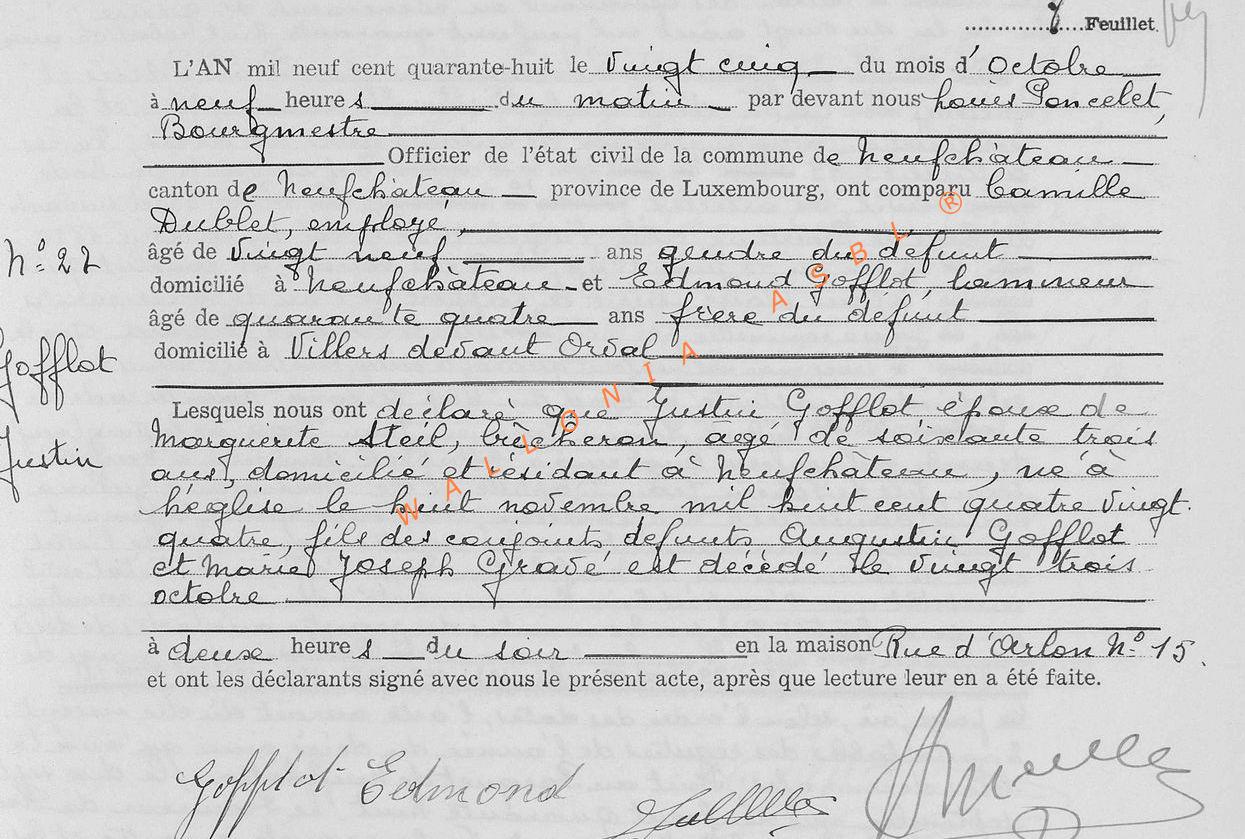 7 Feuillet
L'AN mil neuf cent quarante-huit le Vingt cinq du mois d'Octobre
à neuf heures du matin par devant nous Louis Poncelet,
Bourgmestre
Officier de l'état civil de la commune de Neufchâteau
canton de Neufchâteau province de Luxembourg, ont comparu Camille
Dublet, employé,
N° 22
âgé de vingt neuf ans gendre du défunt
domicilié à Neufchâteau et Edmond Gofflot, lammeur
âgé de quarante quatre ans frère du défunt
domicilié à Villers devant Orval
Gofflot
Justin
Lesquels nous ont déclaré que Justin Gofflot époux de
Marguerite Steil, bûcheron, âgé de soixante trois
ans, domicilié et résidant à Neufchâteau, né à
Léglise le huit novembre mil huit cent quatre vingt
quatre, fils des conjoints défunts Augustin Gofflot
et Marie Joseph Gravé est décédé le vingt trois
octobre
à deux heures du soir en la maison Rue d'Arlon N° 15.
et ont les déclarants signé avec nous le présent acte, après que lecture leur en a été faite.
Gofflot Edmond
WALLONIA ASBL ®